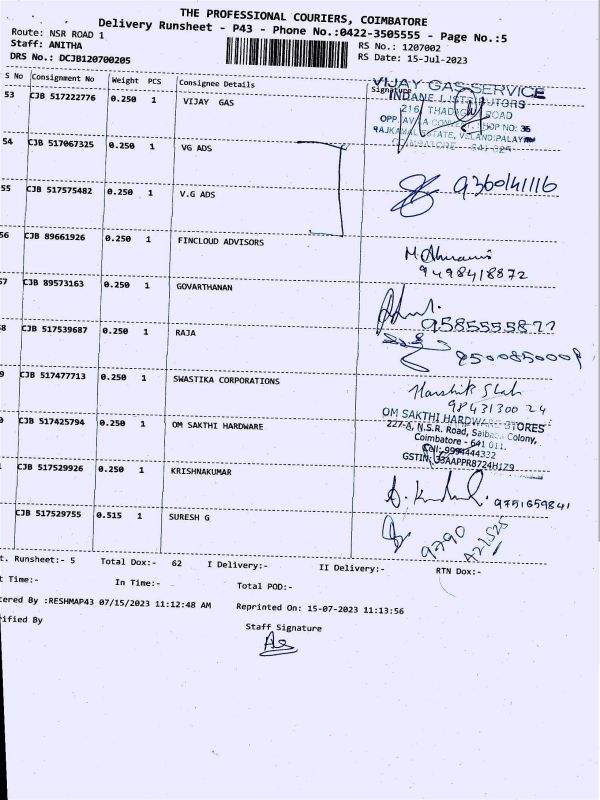 THE PROFESSIONAL COURIERS, COIMBATORE
Delivery Runsheet - P43 - Phone No.:0422-3505555 - Page No.:5
Route: NSR ROAD 1
Staff: ANITHA
RS No.: 1207002
DRS No.: DCJB120700205
RS Date: 15-Jul-2023
S No Consignment No Weight PCS Consignee Details Signature
53 CJB 517222776 0.250 1 VIJAY GAS
VIJAY GAS SERVICE
INDANE DISTRIBUTORS
216, THADAGAM ROAD
54 CJB 517067325 0.250 1 VG ADS
55 CJB 517575482 0.250 1 V.G ADS
9360141116
56 CJB 89661926 0.250 1 FINCLOUD ADVISORS
9498418872
57 CJB 89573163 0.250 1 GOVARTHANAN
9585555877
8 CJB 517539687 0.250 1 RAJA
9500850009
9 CJB 517477713 0.250 1 SWASTIKA CORPORATIONS
Harshik Shah
9843130024
0 CJB 517425794 0.250 1 OM SAKTHI HARDWARE
OM SAKTHI HARDWARE STORES
227-A, N.S.R. Road, Saibaba Colony,
Coimbatore - 641 011.
Cell: 9994444332
GSTIN: 33AAPPR8724H1Z9
CJB 517529926 0.250 1 KRISHNAKUMAR
9751659841
CJB 517529755 0.515 1 SURESH G
9790
t. Runsheet:- 5 Total Dox:- 62 I Delivery:- II Delivery:- RTN Dox:-
t Time:- In Time:- Total POD:-
tered By :RESHMAP43 07/15/2023 11:12:48 AM Reprinted On: 15-07-2023 11:13:56
rified By Staff Signature